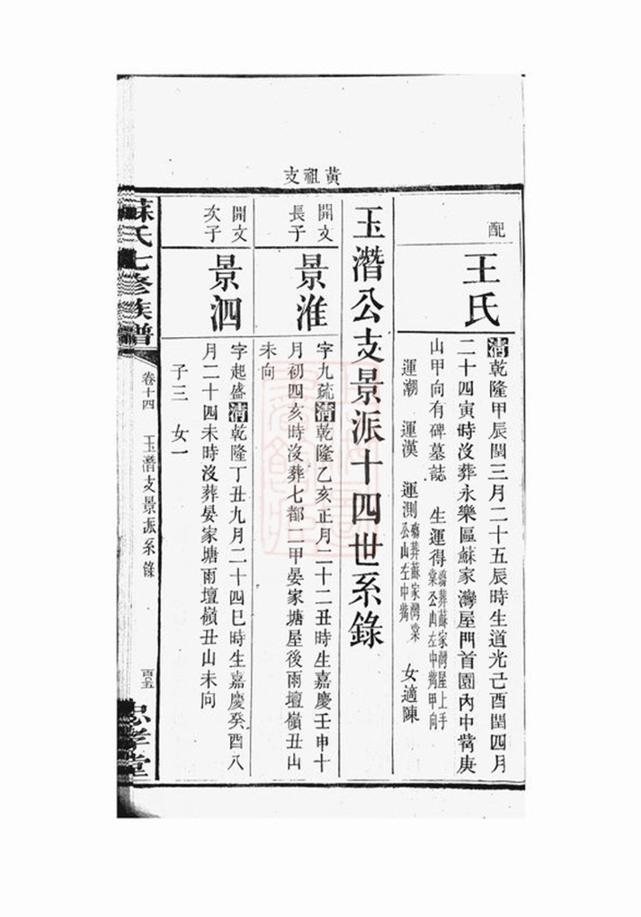 黃祖支
配
王氏
清乾隆甲辰閏三月二十五辰時生道光己酉閏四月
二十四寅時沒葬永樂區蘇家灣屋門首園內中嘴庚
山甲向有碑墓誌 生運得殤葬蘇家灣屋上手
棠公山左中嘴甲向
運潮 運漢 運測殤葬蘇家灣棠
公山左中嘴 女適陳
玉潛公支景派十四世系錄
開文
長子
景淮
字九疏清乾隆乙亥正月二十二丑時生嘉慶壬申十
月初四亥時沒葬七都二甲晏家塘屋後雨壇嶺丑山
未向
開文
次子
景泗
字起盛清乾隆丁丑九月二十四巳時生嘉慶癸酉八
月二十四未時沒葬晏家塘雨壇嶺丑山未向
子三 女一
蘇氏七修族譜
卷十四
玉潛支景派系錄
忠孝堂